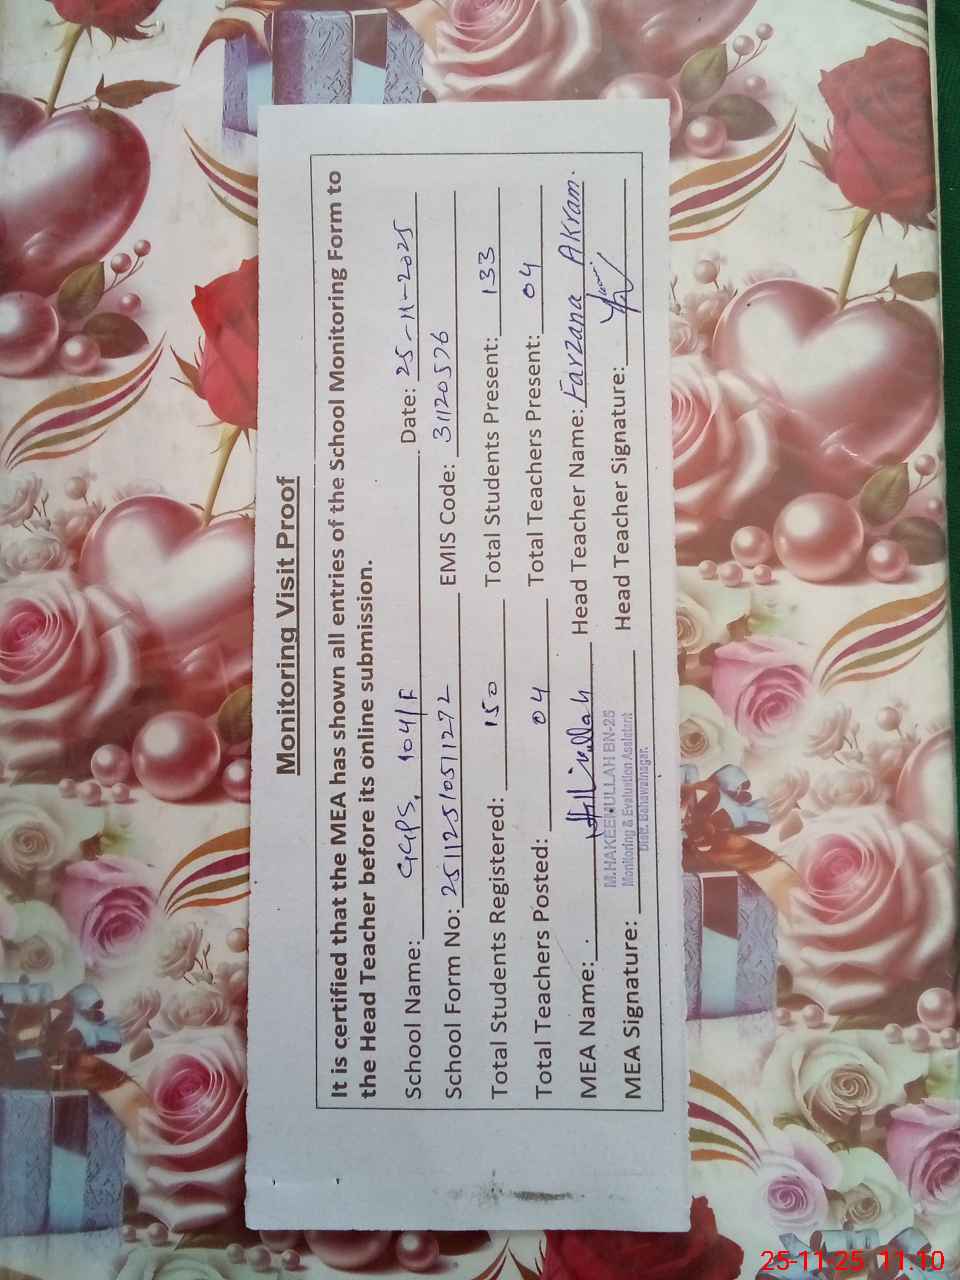 Monitoring Visit Proof
It is certified that the MEA has shown all entries of the School Monitoring Form to
the Head Teacher before its online submission.
School Name: GGPS, 104/F Date: 25-11-2025
School Form No: 25112510511272 EMIS Code: 31120576
Total Students Registered: 150 Total Students Present: 133
Total Teachers Posted: 04 Total Teachers Present: 04
MEA Name: Head Teacher Name: Farzana Akram.
M.HAKEEMULLAH BN-25
Monitoring & Evaluation Assistant
Distt. Bahawalnagar.
MEA Signature: Head Teacher Signature:
25-11-25 11:10